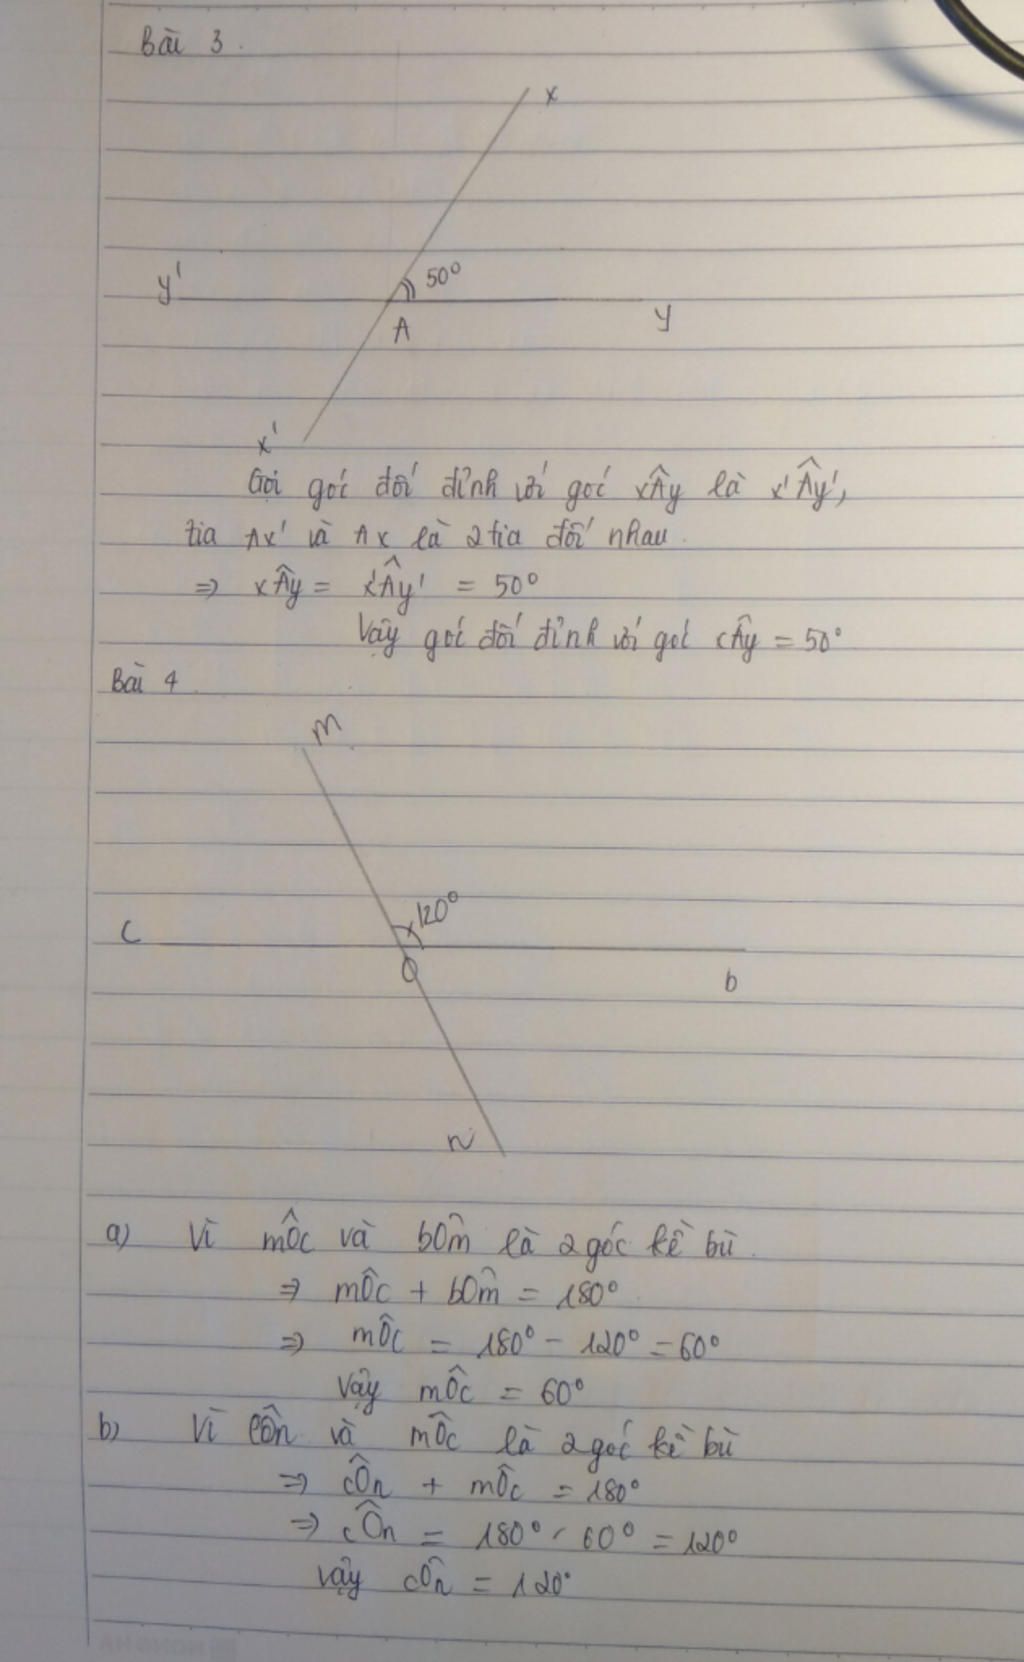 Bài 3.
x
y'
50°
A
y
x'
Gọi góc đối đỉnh với góc xÂy là x'Ây',
tia Ax' và Ax là 2 tia đối nhau.
⇒ xÂy = x'Ây' = 50°
Vậy góc đối đỉnh với góc xÂy = 50°
Bài 4
m
120°
c
O
b
n
a) Vì mÔc và bÔm là 2 góc kề bù.
⇒ mÔc + bÔm = 180°
⇒ mÔc = 180° - 120° = 60°
Vậy mÔc = 60°
b) Vì cÔn và mÔc là 2 góc kề bù
⇒ cÔn + mÔc = 180°
⇒ cÔn = 180° - 60° = 120°
Vậy cÔn = 120°